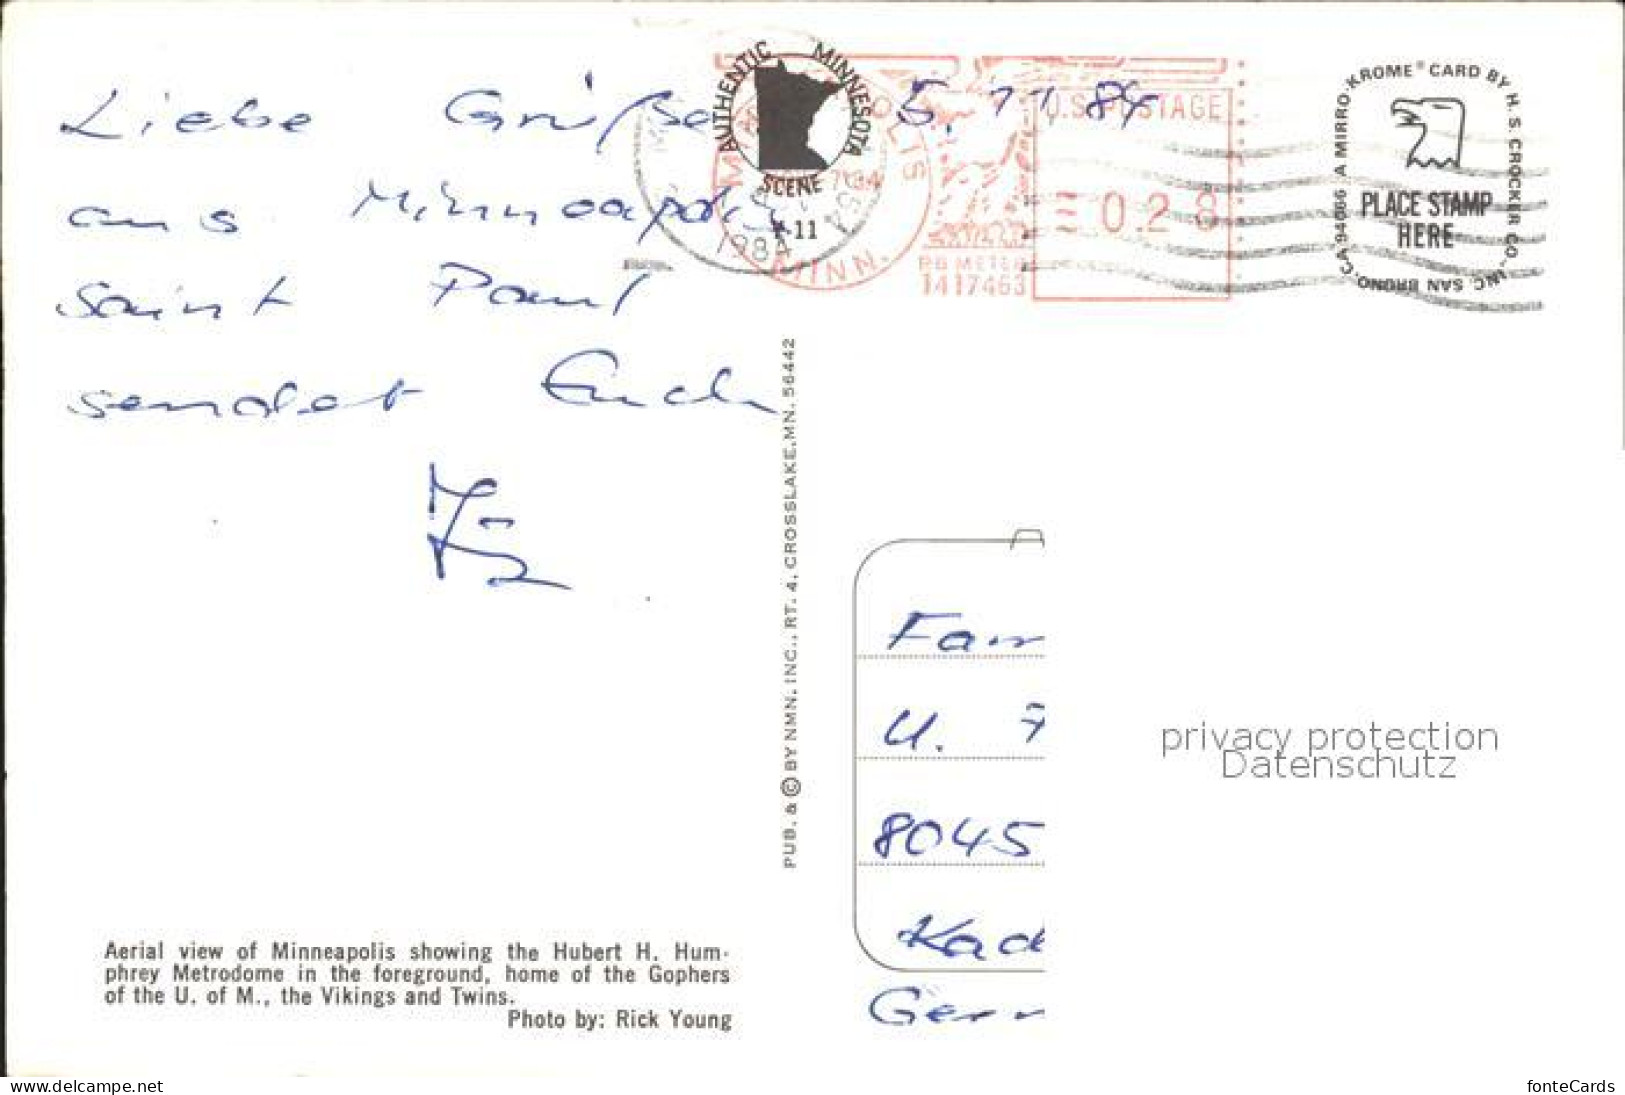 Liebe Grüße 5. 11. 84
aus Minneapolis
Saint Paul
sendet Euch
AUTHENTIC MINNESOTA
SCENE
1984
MINN.
U.S. POSTAGE
0.28
PB METER
1417463
A MIRRO-KROME® CARD BY H. S. CROCKER CO., INC. SAN BRUNO, CA. 94066
PLACE STAMP
HERE
PUB. & © BY NMN. INC., RT. 4, CROSSLAKE, MN. 56442
Fam
U.
8045
Kad
Germ
privacy protection
Datenschutz
Aerial view of Minneapolis showing the Hubert H. Hum-
phrey Metrodome in the foreground, home of the Gophers
of the U. of M., the Vikings and Twins.
Photo by: Rick Young
www.delcampe.net
fonteCards